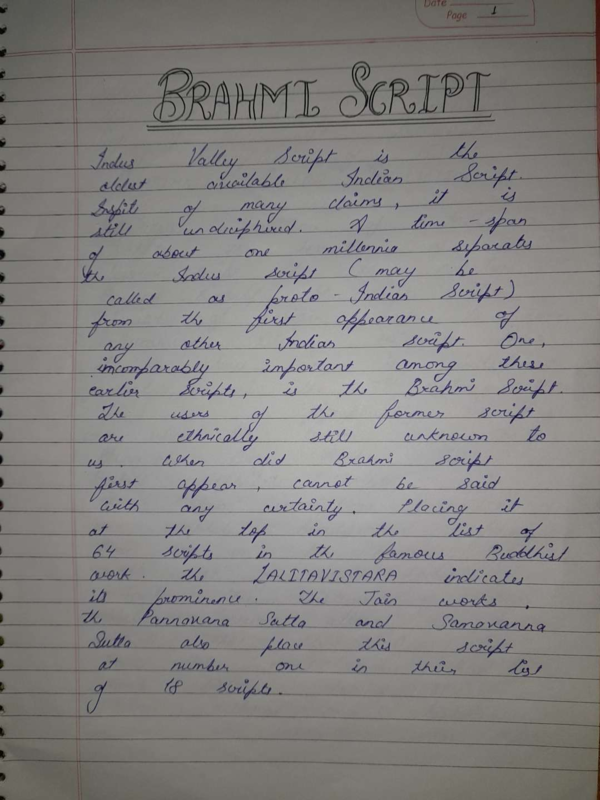 Date
Page 1
BRAHMI SCRIPT
Indus Valley Script is the
oldest available Indian Script.
Inspite of many claims, it is
still undeciphered. A time-span
of about one millennia separates
the Indus script (may be
called as proto-Indian Script)
from the first appearance of
any other Indian script. One,
incomparably important among these
earlier Scripts, is the Brahmi Script.
The users of the former script
are ethnically still unknown to
us. When did Brahmi script
first appear, cannot be said
with any certainty. Placing it
at the top in the list of
64 scripts in the famous Buddhist
work. the LALITAVISTARA indicates
its prominence. The Jain works,
the Pannavana Sutta and Samavanna
Sutta also place this script
at number one in their list
of 18 scripts.